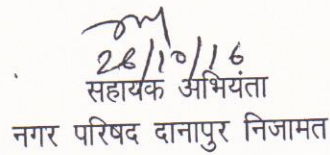 26/10/16
सहायक अभियंता
नगर परिषद दानापुर निजामत